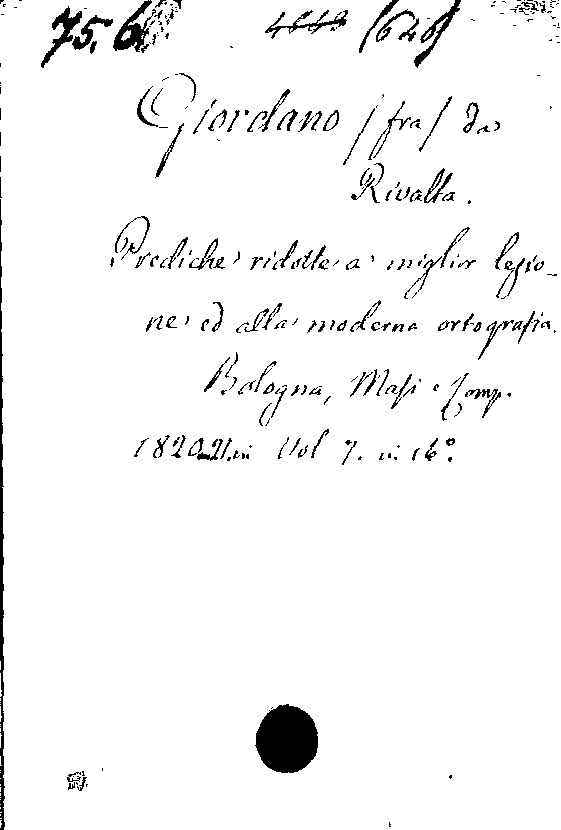 75. 6 4843 (646)
Giordano / fra / da
Rivalta.
Prediche ridotte a miglior lezio-
ne ed alla moderna ortografia.
Bologna, Masi e Comp.
1820-21. in Vol 7. in 16°.